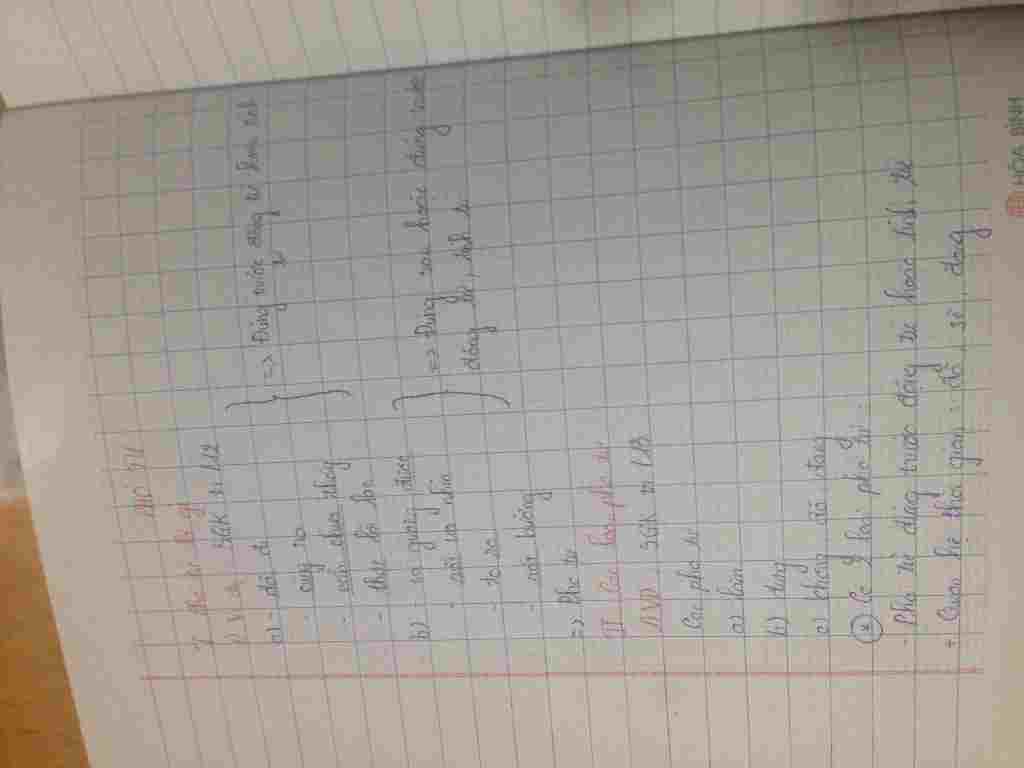 I. Phó từ là gì
1) VD: SGK tr 12
a) - đã đi
- cũng ra
- vẫn chưa thấy
- thật lỗi lạc
} => Đứng trước động từ hoặc tính
b) - soi gương được
- rất ưa nhìn
- to ra
- rất bướng
} => Đứng sau hoặc đứng trước
động từ, tính từ
=> Phó từ
II Các loại phó từ
1) VD SGK tr 13
Các phó từ
a) lắm
b) đừng
c) không, đã, đang
* Có 2 loại phó từ
- Phó từ đứng trước động từ hoặc tính từ
+ Quan hệ thời gian: đã, sẽ, đang
HÒA BÌNH